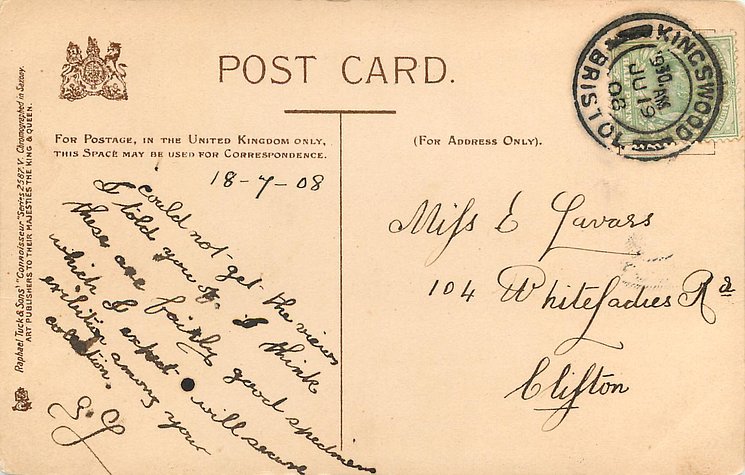 POST CARD.
FOR POSTAGE, IN THE UNITED KINGDOM ONLY,
THIS SPACE MAY BE USED FOR CORRESPONDENCE.
(FOR ADDRESS ONLY).
KINGSWOOD
BRISTOL
9 10 AM
JU 19
08
18-7-08
could not get the views
I told you of I think
these are fairly good specimens
which I expect will secure
exibition among your
colection.
Miss E Lavars
104 Whiteladies Rd
Clifton
Raphael Tuck & Sons' "Connoisseur" Series 2587. V. Chromographed in Saxony.
ART PUBLISHERS TO THEIR MAJESTIES THE KING & QUEEN.